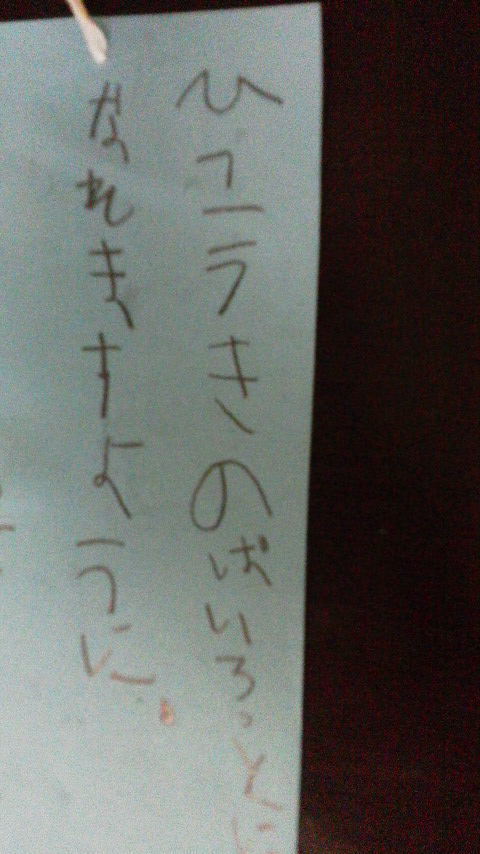 ひこうきのぱいろっとに
なれますように。